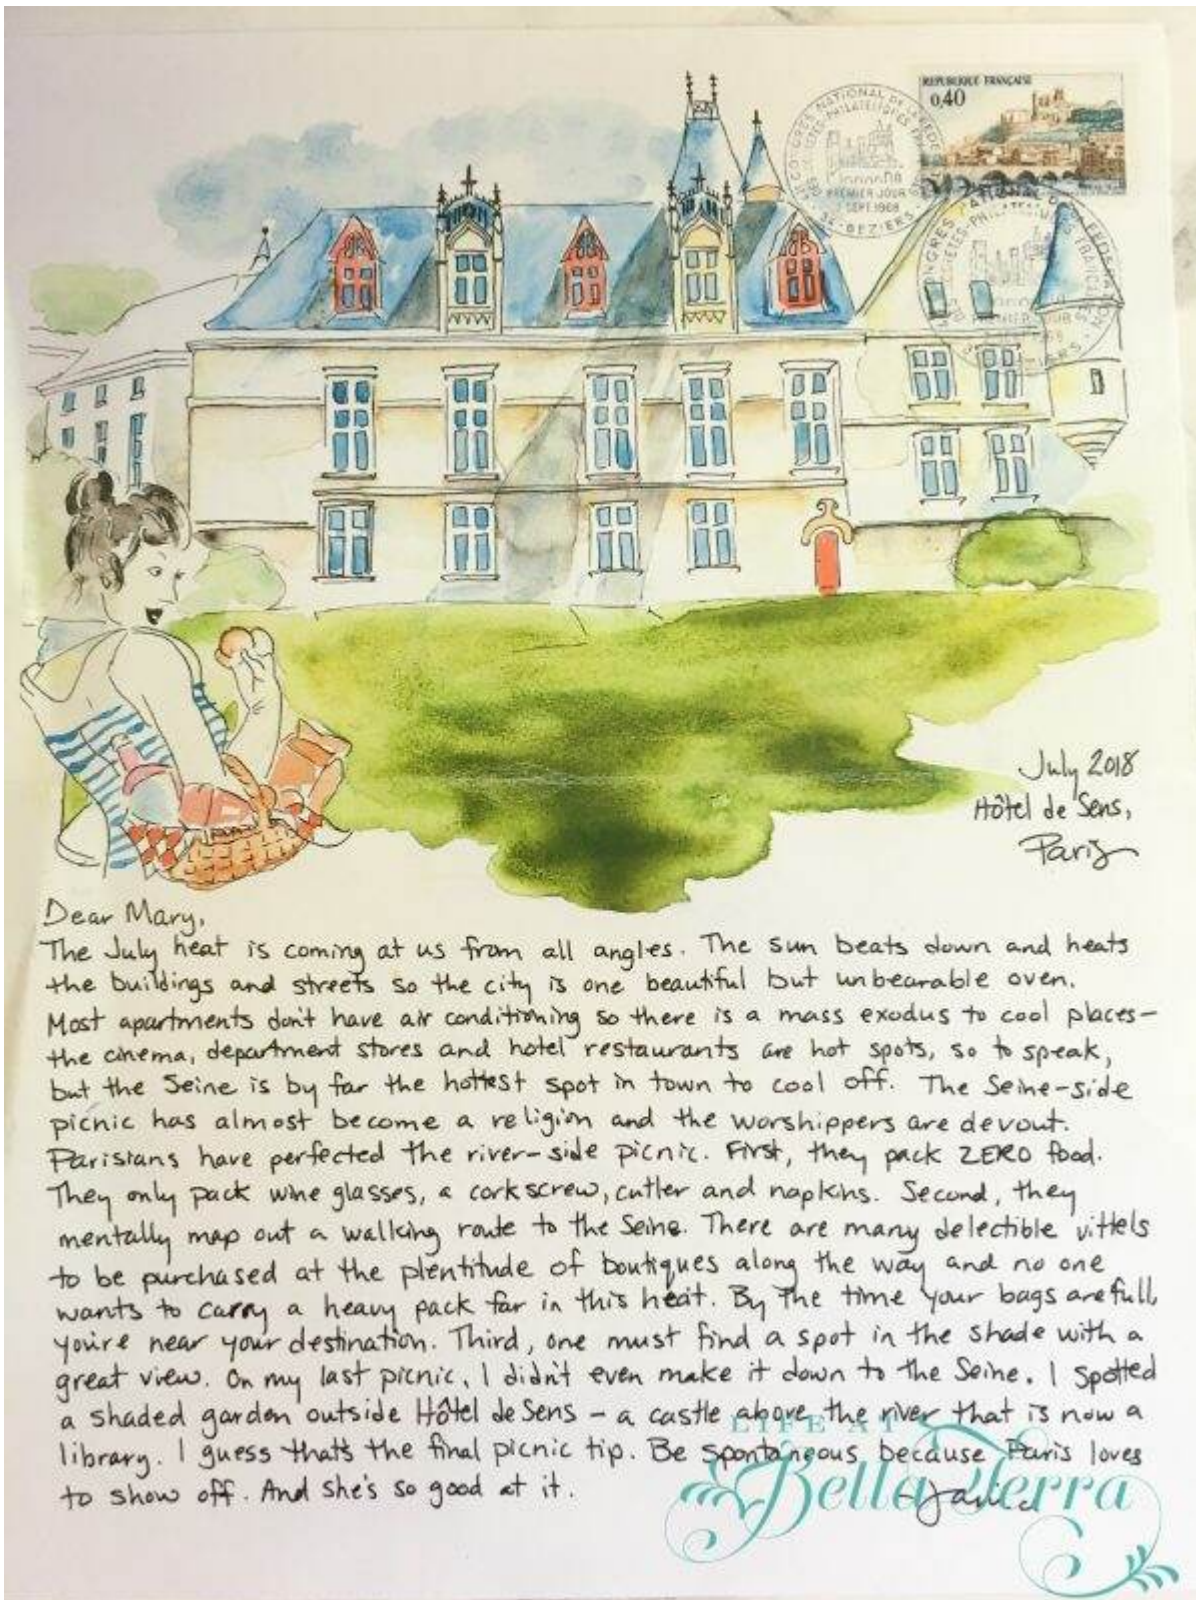 REPUBLIQUE FRANÇAISE
0,40
PREMIER JOUR
SEPT. 1968
34 - BEZIERS
July 2018
Hôtel de Sens,
Paris
Dear Mary,
The July heat is coming at us from all angles. The sun beats down and heats
the buildings and streets so the city is one beautiful but unbearable oven.
Most apartments don't have air conditioning so there is a mass exodus to cool places-
the cinema, department stores and hotel restaurants are hot spots, so to speak,
but the Seine is by far the hottest spot in town to cool off. The Seine-side
picnic has almost become a religion and the worshippers are devout.
Parisians have perfected the river-side picnic. First, they pack ZERO food.
They only pack wine glasses, a corkscrew, cutler and napkins. Second, they
mentally map out a walking route to the Seine. There are many delectible vittels
to be purchased at the plentitude of boutiques along the way and no one
wants to carry a heavy pack far in this heat. By the time your bags are full,
you're near your destination. Third, one must find a spot in the shade with a
great view. On my last picnic, I didn't even make it down to the Seine. I spotted
a shaded garden outside Hôtel de Sens - a castle above the river that is now a
library. I guess that's the final picnic tip. Be spontaneous because Paris loves
to show off. And she's so good at it.
LIFE AT
Bella Terra